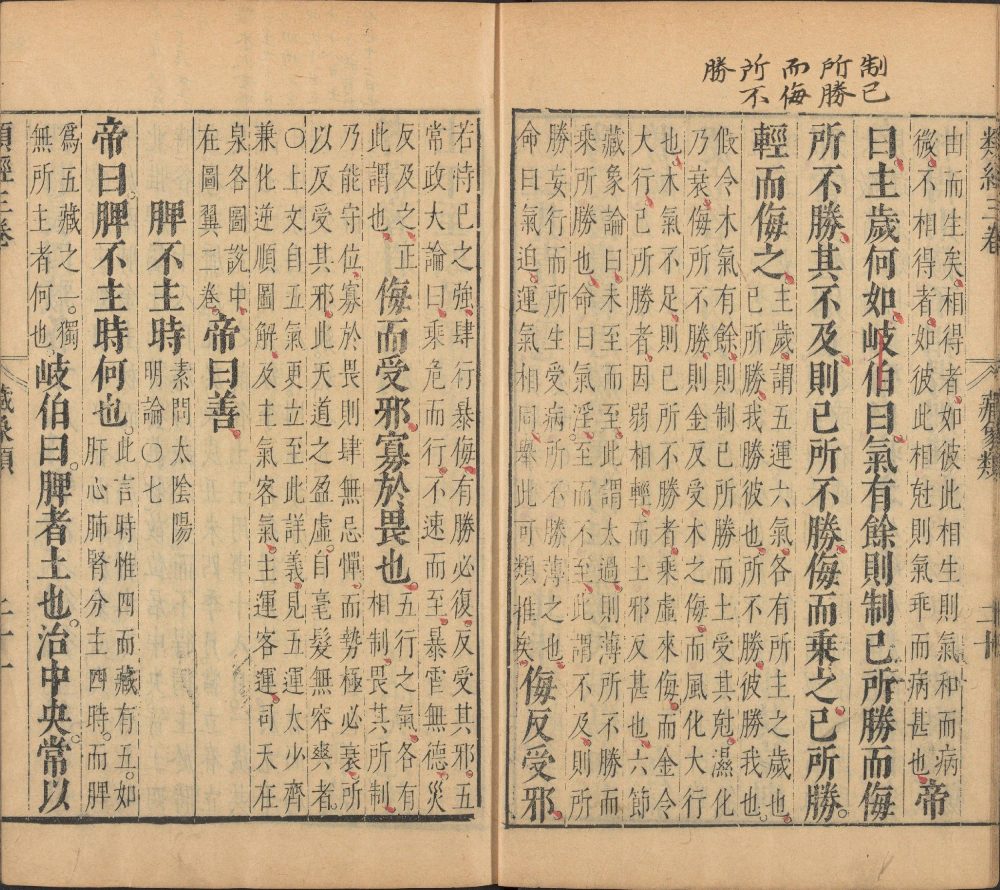 制已
所勝
而侮
所不
勝
類經三卷 藏象類
由而生矣相得者如彼此相生則氣和而病
微不相得者如彼此相尅則氣乖而病甚也
帝
曰主歲何如岐伯曰氣有餘則制已所勝而侮
所不勝其不及則已所不勝侮而乗之已所勝
輕而侮之
主歲謂五運六氣各有所主之歲也
已所勝我勝彼也所不勝彼勝我也
假令木氣有餘則制已所勝而土受其尅濕化
乃衰侮所不勝則金反受木之侮而風化大行
也木氣不足則已所不勝者乘虛來侮而金令
大行已所勝者因弱相輕而土邪反甚也六節
藏象論曰未至而至此謂太過則薄所不勝而
乘所勝也命曰氣淫至而不至此謂不及則所
勝妄行而所生受病所不勝薄之也
命曰氣迫運氣相同舉此可類推矣
侮反受邪
若恃已之強肆行暴侮有勝必復反受其邪五
常政大論曰乘危而行不速而至暴虐無德災
反及之正
此謂也
侮而受邪寡於畏也
五行之氣各有
相制畏其所制
乃能守位寡於畏則肆無忌憚而勢極必衰所
以反受其邪此天道之盈虛自毫髮無容爽者
○上文自五氣更立至此詳義見五運太少齊
兼化逆順圖解及主氣客氣主運客運司天在
泉各圖說中
在圖翼二卷
帝曰善
脾不主時
素問太陰陽
明論○七
帝曰脾不主時何也
此言時惟四而藏有五如
肝心肺腎分主四時而脾
爲五藏之一獨
無所主者何也
岐伯曰脾者土也治中央常以
類經三卷 藏象類